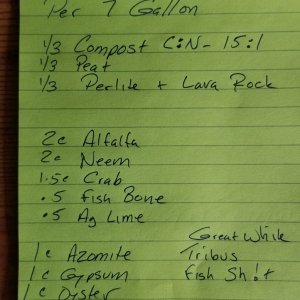 Per 7 Gallon
1/3 Compost C:N- 15:1
1/3 Peat
1/3 Perlite + Lava Rock
2c Alfalfa
2c Neem
1.5c Crab
.5 Fish Bone
.5 Ag Lime
Great White
1c Azomite Tribus
1c Gypsum Fish Sh!t
1c Oyster